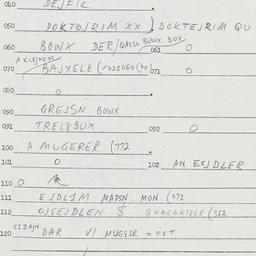 040 DEJFIK
050 DOKTOJRIM XX ) DOKTEJRIM QU
060 BOWX DER/ BUWX BUX
061 0
A KLEJNEM
070 BAJXELE ( 071 0
080 0
090 GREJSN BOWX
091 TREL8BUX 092 0
100 A MUGERER (772
101 0 102 AN EJDLER
110 0
111 EJDLIM MATSN... MON (172
112 OJSEJDLEN $ (332
120 DAR VI MUGESR = FET